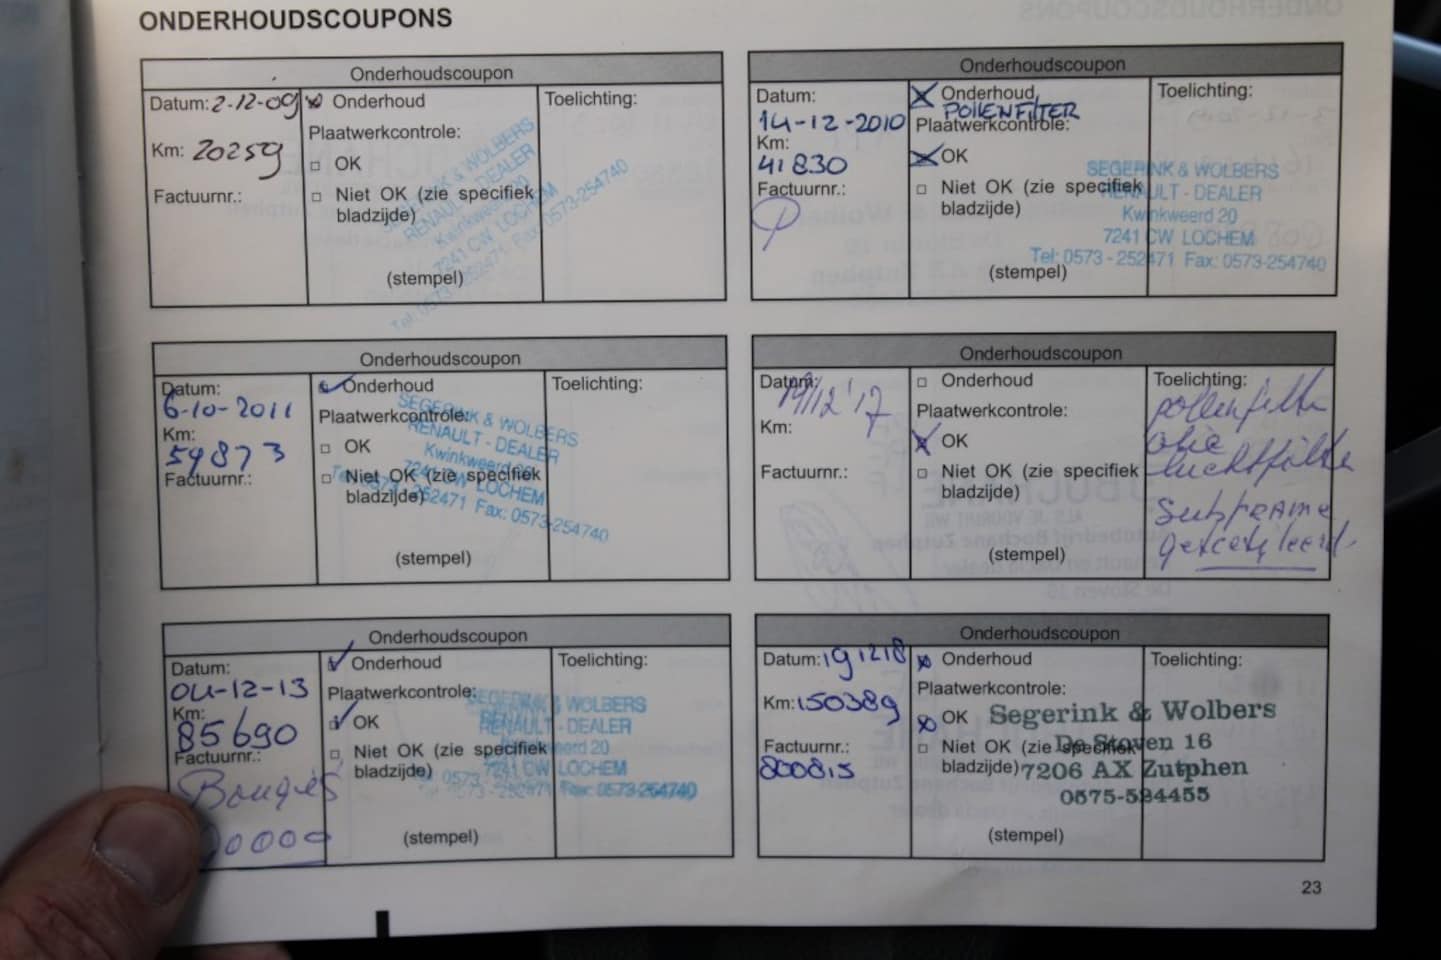 ONDERHOUDSCOUPONS
Onderhoudscoupon
Datum: 2-12-09
Km: 20259
Factuurnr.:
Onderhoud
Plaatwerkcontrole:
OK
Niet OK (zie specifiek
bladzijde)
(stempel)
Toelichting:
SEGERINK & WOLBERS
RENAULT - DEALER
Kwinkweerd 20
7241 CW LOCHEM
Tel: 0573-252471 Fax: 0573-254740
Onderhoudscoupon
Datum:
14-12-2010
Km:
41830
Factuurnr.:
Onderhoud
POLLENFILTER
Plaatwerkcontrole:
OK
Niet OK (zie specifiek
bladzijde)
(stempel)
Toelichting:
SEGERINK & WOLBERS
RENAULT - DEALER
Kwinkweerd 20
7241 CW LOCHEM
Tel: 0573-252471 Fax: 0573-254740
Onderhoudscoupon
Datum:
6-10-2011
Km:
59873
Factuurnr.:
Onderhoud
Plaatwerkcontrole:
OK
Niet OK (zie specifiek
bladzijde)
(stempel)
Toelichting:
SEGERINK & WOLBERS
RENAULT - DEALER
Kwinkweerd 20
7241 CW LOCHEM
Tel: 0573-252471 Fax: 0573-254740
Onderhoudscoupon
Datum:
19/12'17
Km:
Factuurnr.:
Onderhoud
Plaatwerkcontrole:
OK
Niet OK (zie specifiek
bladzijde)
(stempel)
Toelichting:
pollenfilter
olie
luchtfilter
Subframe
Onderhoudscoupon
Datum:
04-12-13
Km:
85690
Factuurnr.:
Bougies
Onderhoud
Plaatwerkcontrole:
OK
Niet OK (zie specifiek
bladzijde)
(stempel)
Toelichting:
SEGERINK & WOLBERS
RENAULT - DEALER
Kwinkweerd 20
7241 CW LOCHEM
Tel: 0573-252471 Fax: 0573-254740
Onderhoudscoupon
Datum: 191218
Km: 150389
Factuurnr.:
800815
Onderhoud
Plaatwerkcontrole:
OK
Niet OK (zie specifiek
bladzijde)
(stempel)
Toelichting:
Segerink & Wolbers
De Stoven 16
7206 AX Zutphen
0575-524455
23